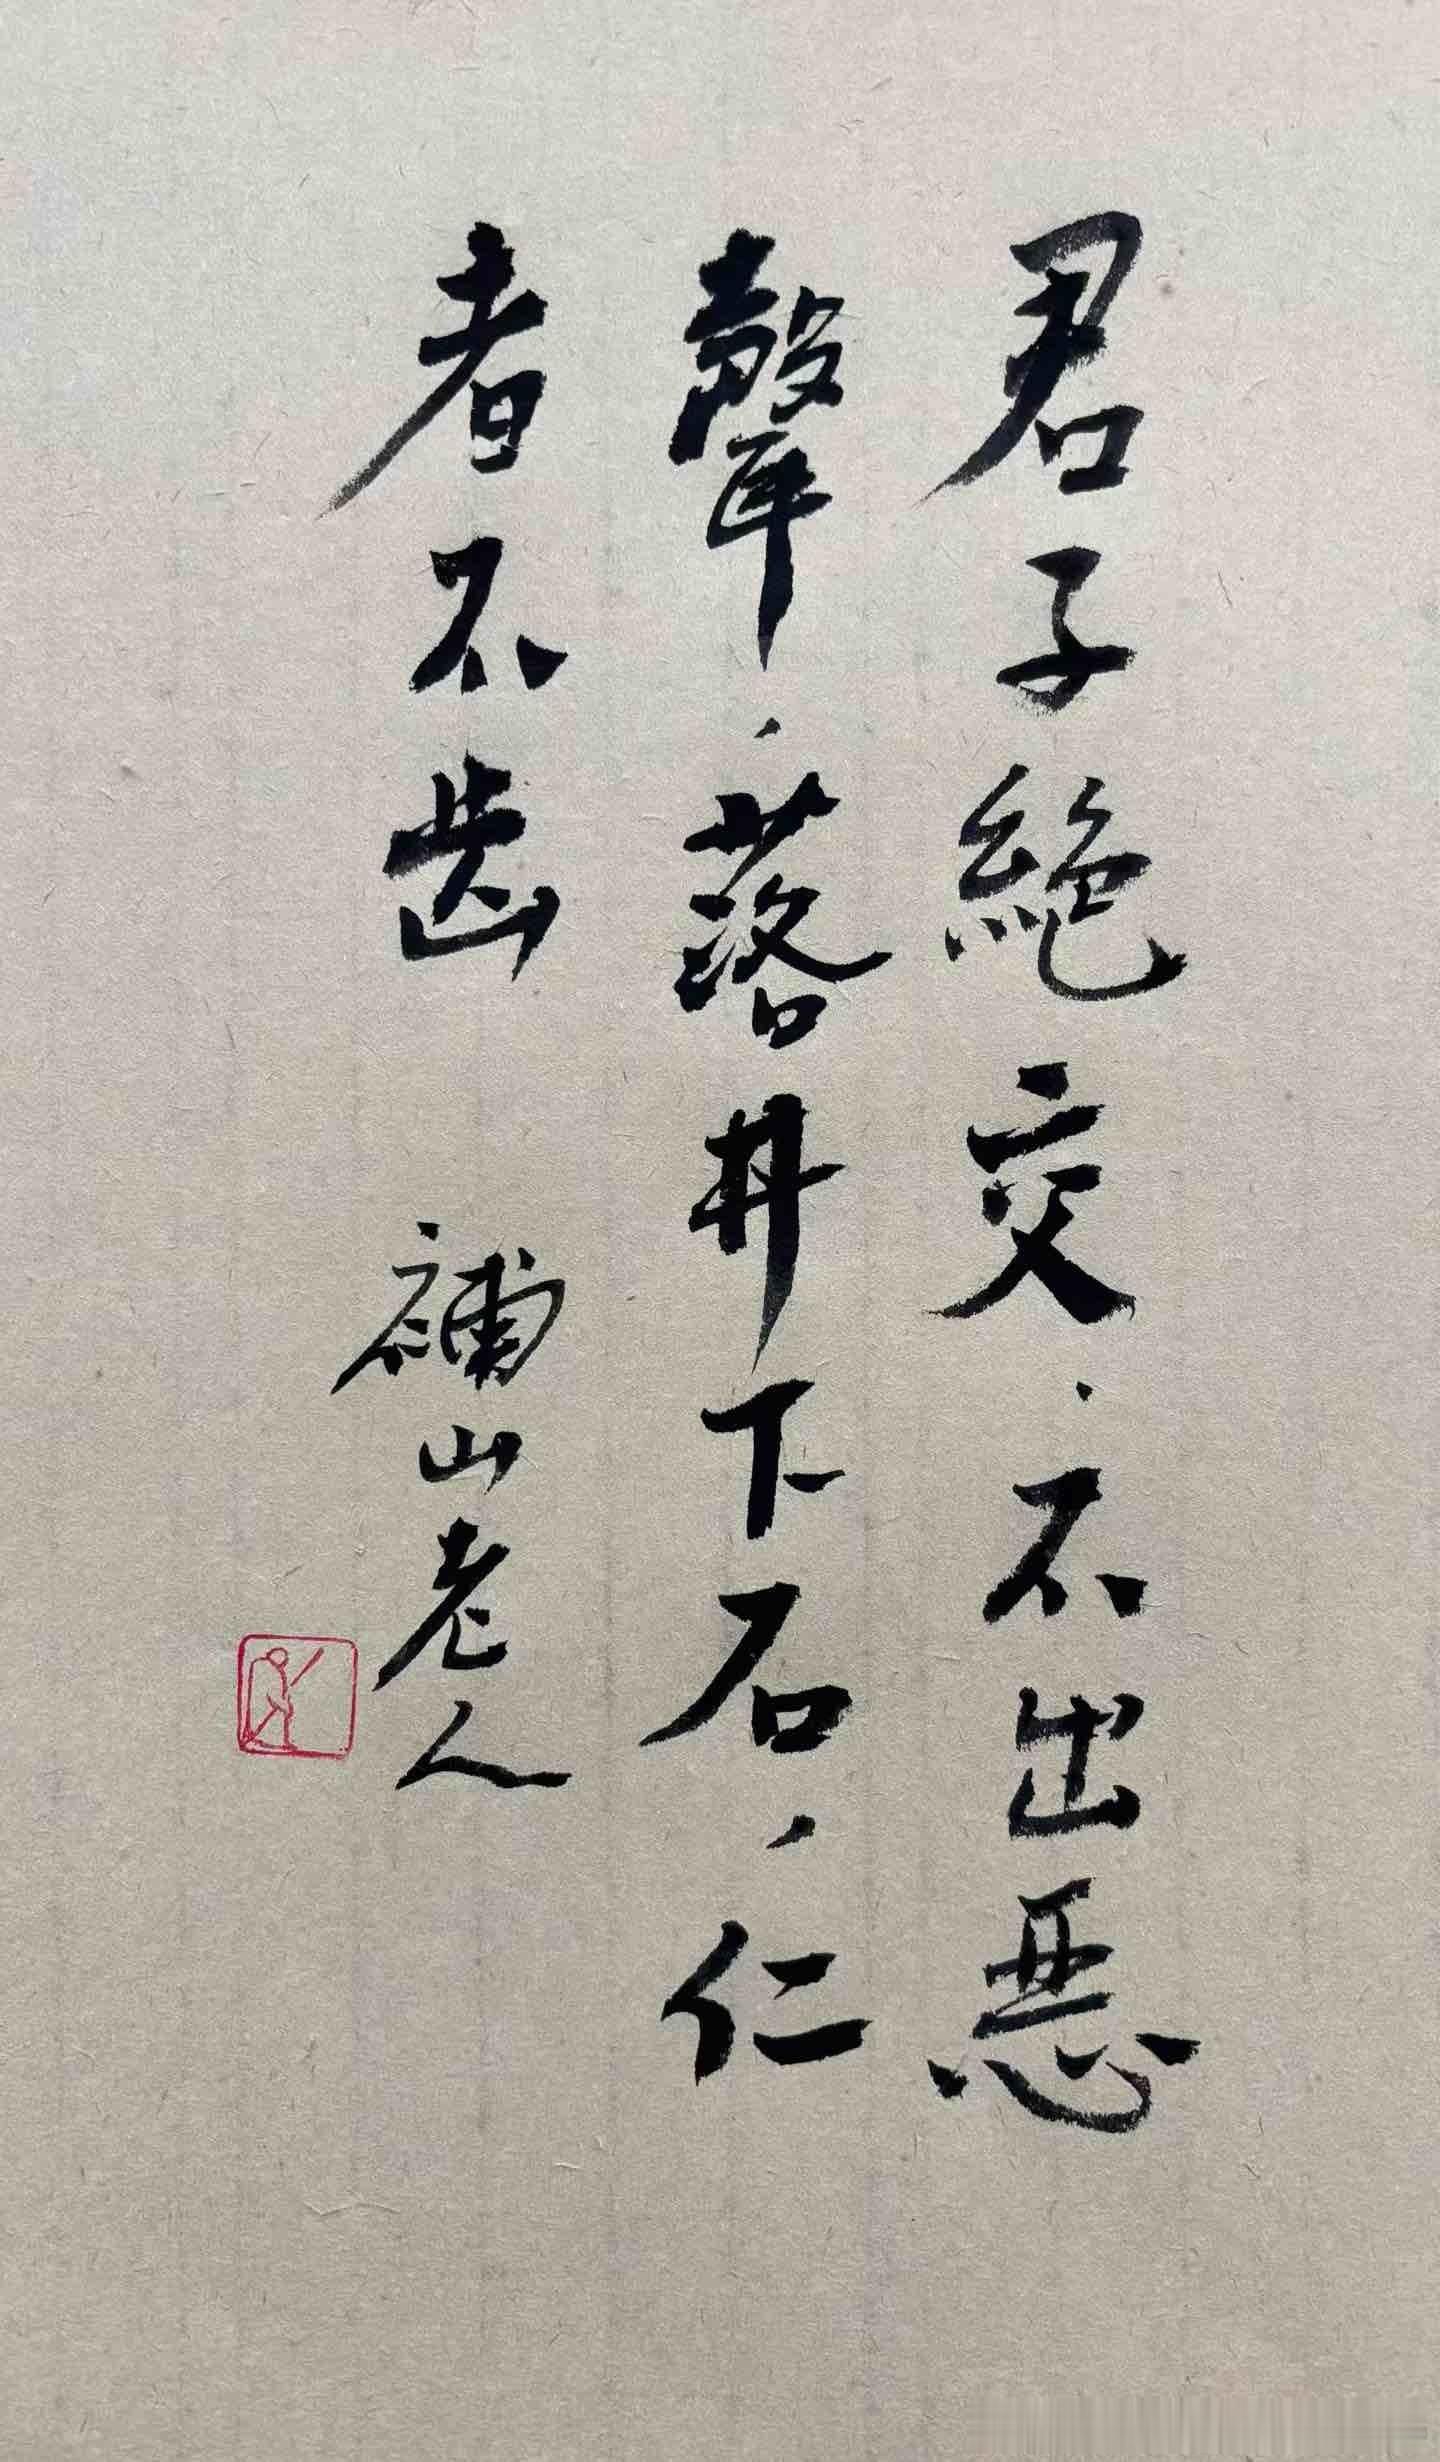 君子絶交、不出惡
聲、落井下石、仁
者不齒
補山老人